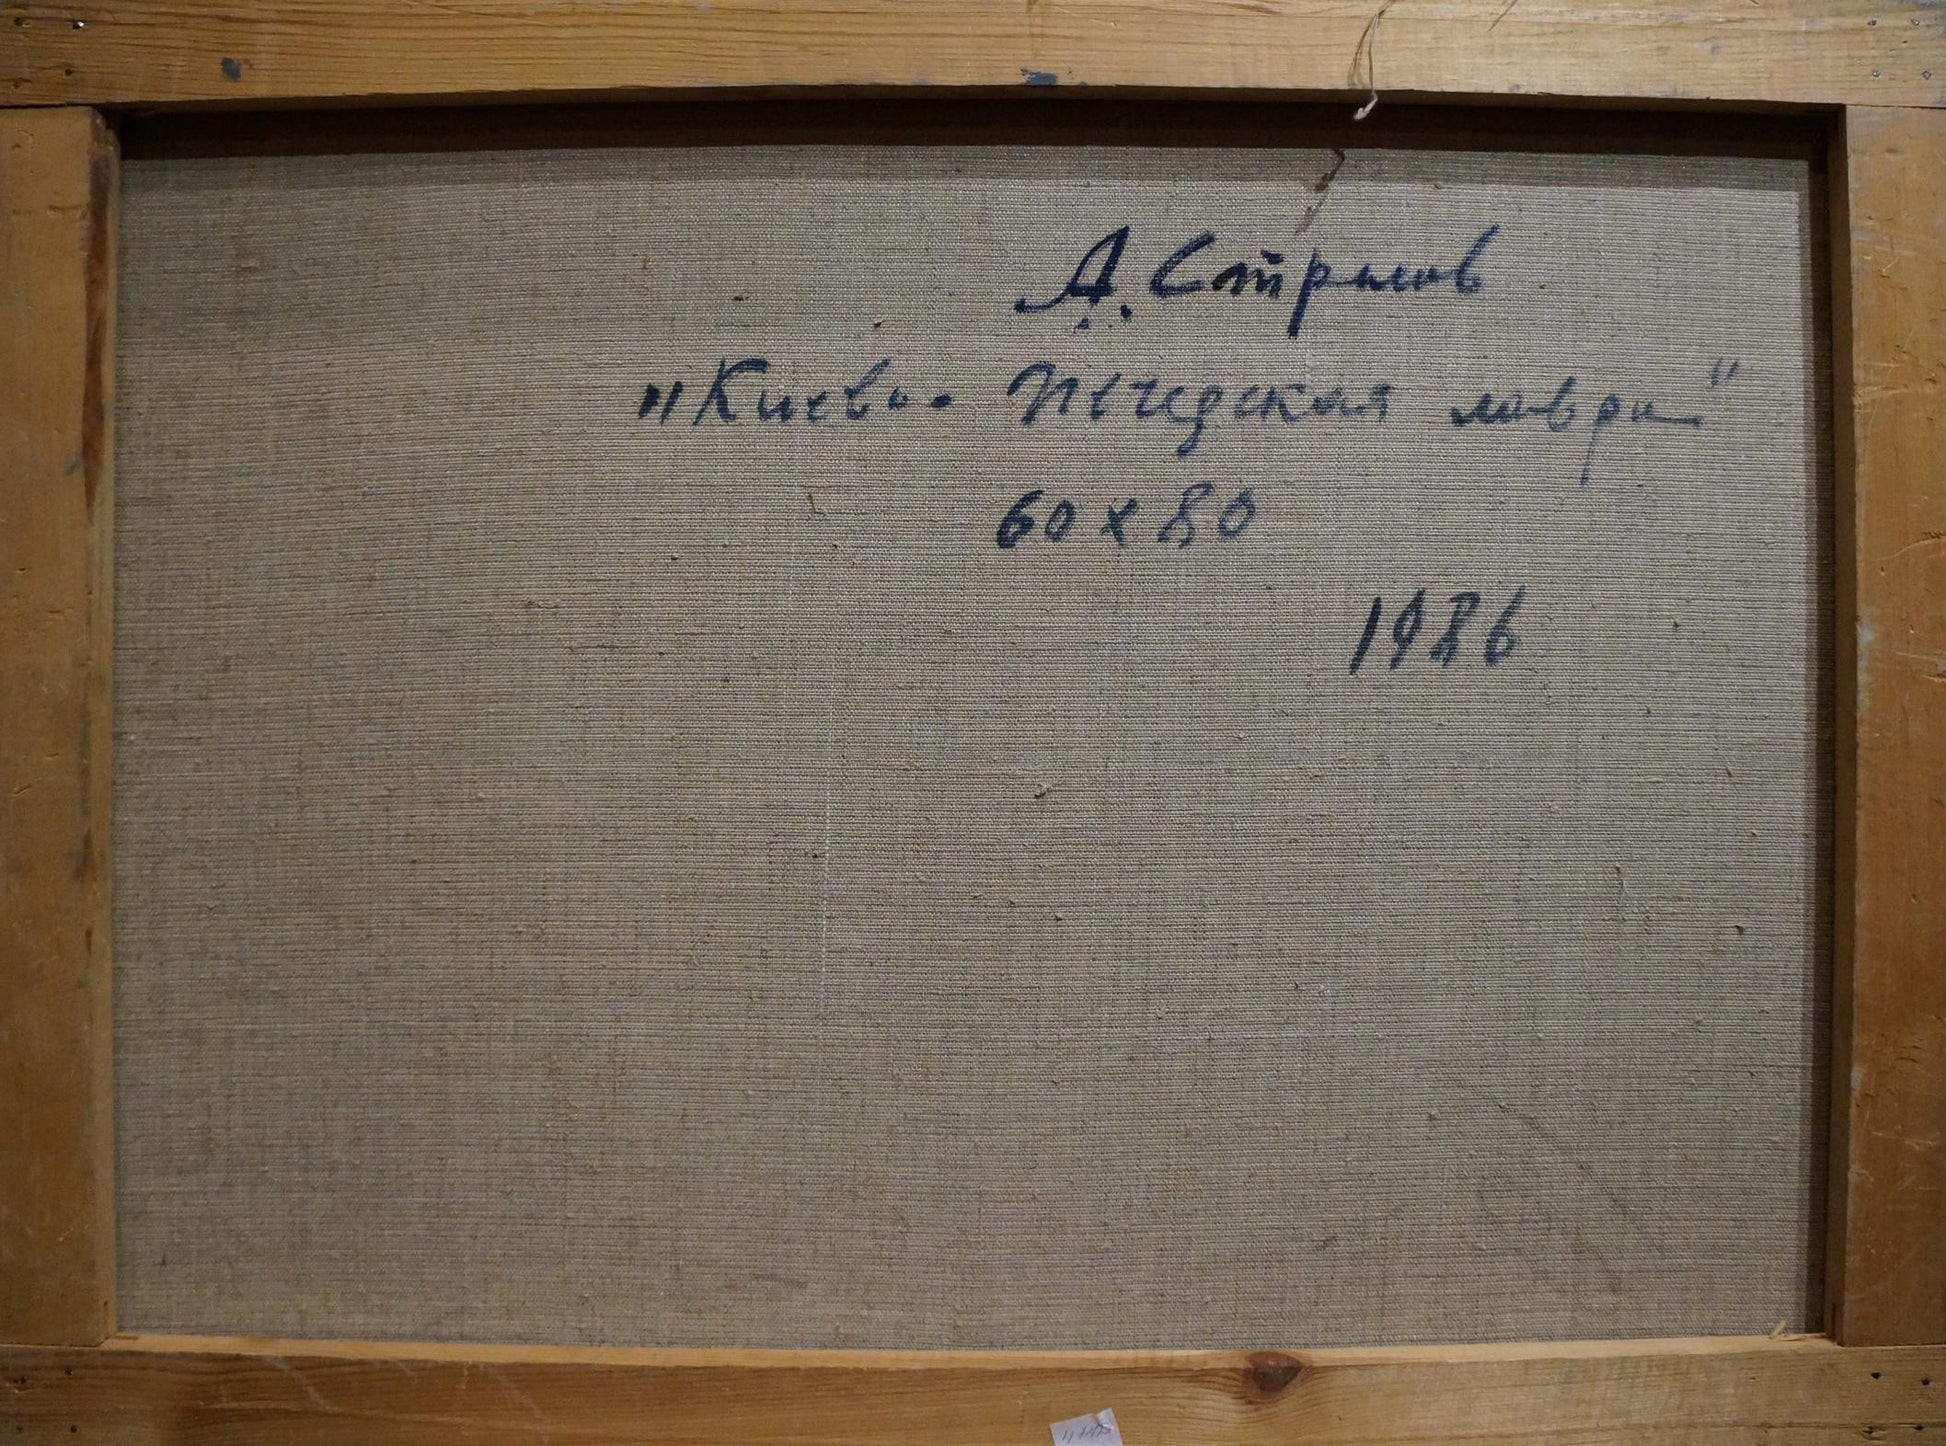 А. Стрынов
"Киево- Печерская лавра"
60 x 80
1986